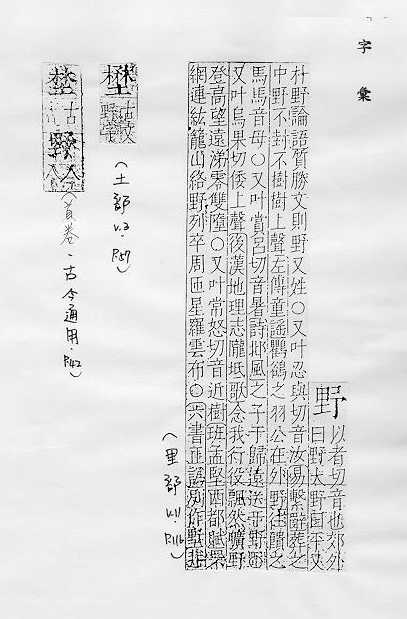 字彙
野
以者切音也郊外
曰野大野國平又
朴野論語質勝文則野又姓○又叶忍與切音汝易繫辭葬之
中野不封不樹樹上聲左傳童謠鸜鵒之羽公在外野往饋之
馬馬音母○又叶賞呂切音暑詩邶風之子于歸遠送于野
又叶烏果切倭上聲後漢地理志隴坻歌念我行役飄然曠野
登高望遠涕零雙墮○又叶常怒切音近樹班孟堅西都賦罘
網連紘籠山絡野列卒周匝星羅雲布○六書正譌別作墅非
(里部 v.11 P.116)
埜 古文野字
(土部 v.3 P.57)
埜 古
野 今
(首卷·古今通用·P.42)